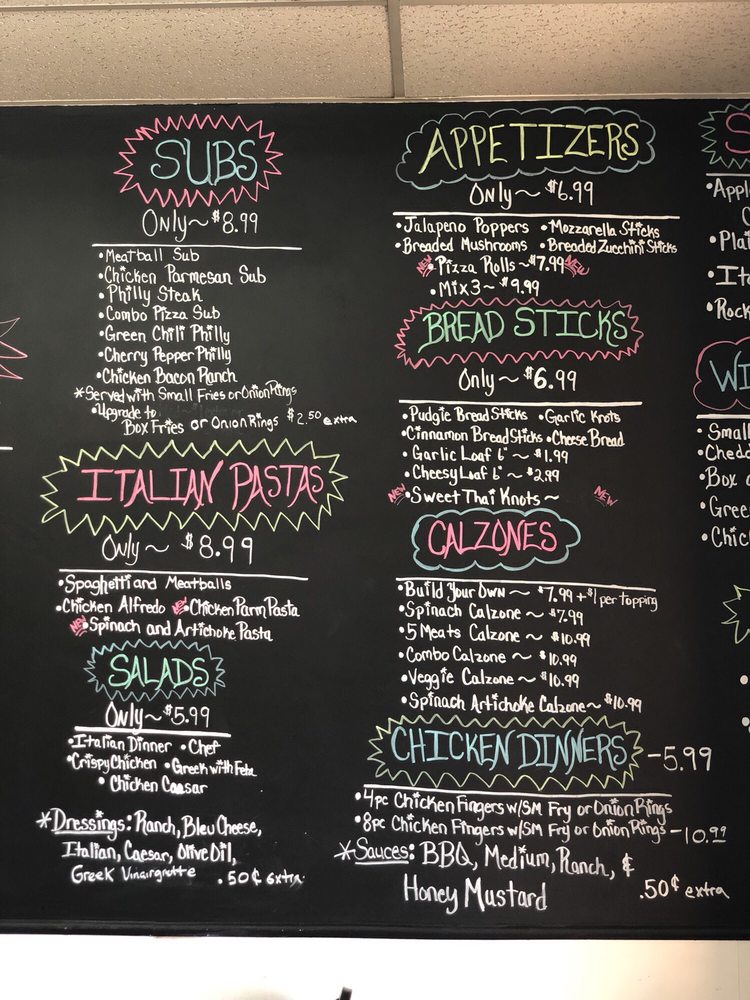 SUBS
Only~ $8.99
•Meatball Sub
•Chicken Parmesan Sub
•Philly Steak
•Combo Pizza Sub
•Green Chili Philly
•Cherry Pepper Philly
•Chicken Bacon Ranch
*Served with Small Fries or Onion Rings
•Upgrade to
Box Fries or Onion Rings $2.50 extra
ITALIAN PASTAS
Only~ $8.99
•Spaghetti and Meatballs
•Chicken Alfredo NEW •Chicken Parm Pasta
NEW •Spinach and Artichoke Pasta
SALADS
Only~ $5.99
•Italian Dinner •Chef
•Crispy Chicken •Greek with Feta
•Chicken Caesar
*Dressings: Ranch, Bleu Cheese,
Italian, Caesar, Olive Oil,
Greek Vinairgrette .50¢ extra
APPETIZERS
Only~ $6.99
•Jalapeno Poppers •Mozzarella Sticks
•Breaded Mushrooms •Breaded Zucchini Sticks
NEW •Pizza Rolls ~ $7.99 NEW
•Mix 3~ $9.99
BREAD STICKS
Only~ $6.99
•Pudgie Bread Sticks •Garlic Knots
•Cinnamon Bread Sticks •Cheese Bread
•Garlic Loaf 6" ~ $1.99
•Cheesy Loaf 6" ~ $2.99
New •Sweet Thai Knots ~ NEW
CALZONES
•Build Your Own ~ $7.99 + $1 per topping
•Spinach Calzone ~ $7.99
•5 Meats Calzone ~ $10.99
•Combo Calzone ~ $10.99
•Veggie Calzone ~ $10.99
•Spinach Artichoke Calzone~ $10.99
CHICKEN DINNERS -5.99
•4pc Chicken Fingers w/SM Fry or Onion Rings
•8pc Chicken Fingers w/SM Fry or Onion Rings -10.99
*Sauces: BBQ, Medium, Ranch, &
Honey Mustard .50¢ extra
S
•Appl
•Plai
•Ita
•Rock
WI
•Small
•Chedd
•Box
•Gree
•Chic